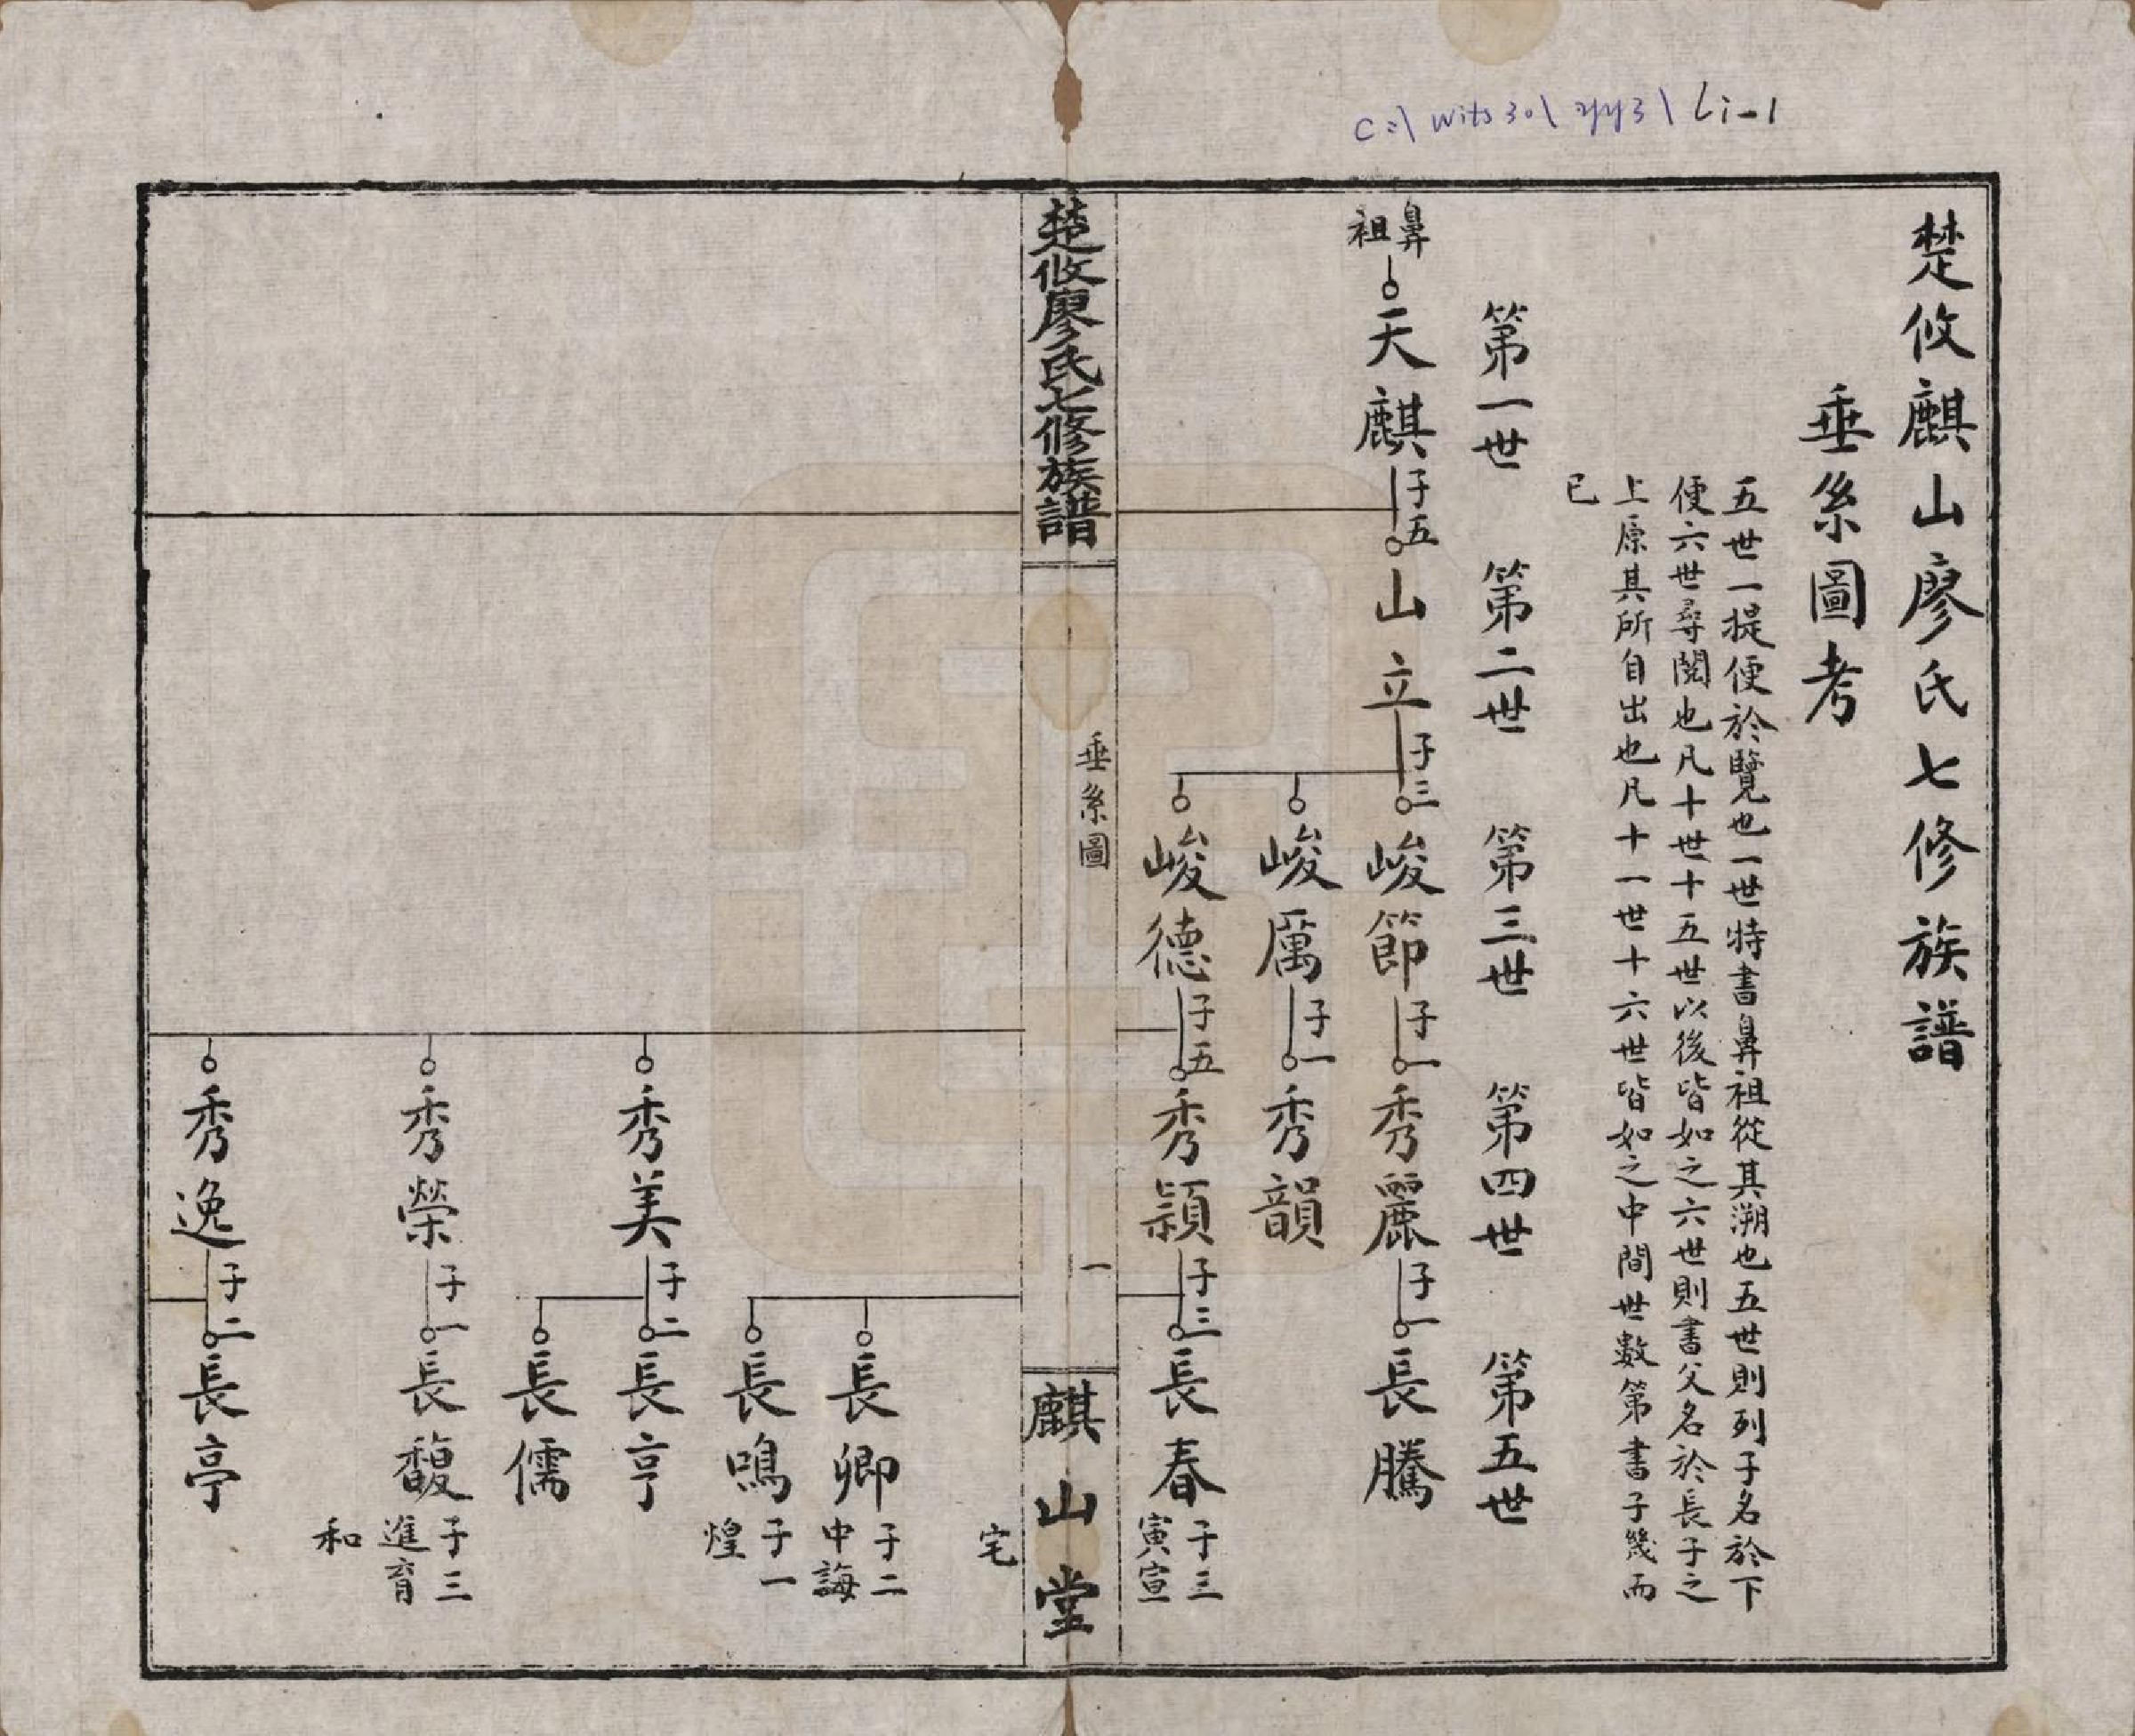 C:\ Wits30\ 243\ Li-1
楚攸麒山廖氏七修族譜
垂系圖考
五世一提便於覽也一世特書鼻祖從其溯也五世則列子名於下
便六世尋閱也凡十世十五世以後皆如之六世則書父名於長子之
上原其所自出也凡十一世十六世皆如之中間世數第書子幾而
已
第一世 第二世 第三世 第四世 第五世
鼻祖 天麒 子五 山立 子三 峻節 子一 秀麗 子一 長騰
峻厲 子一 秀韻
峻德 子五 秀頴 子三 長春 子三 寅宣
楚攸廖氏七修族譜
垂系圖
一
麒山堂
宅
長卿 子二 中誨
長鳴 子一 煌
秀美 子二 長亨
長儒
秀榮 子一 長馥 子三 進育
和
秀逸 子二 長亭